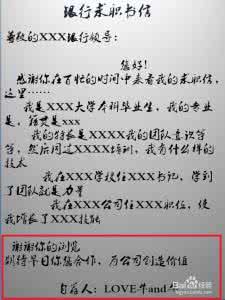 银行求职书信
尊敬的XXX银行领导：
您好！
感谢你在百忙的时间中来看我的求职信，
这里……
我是XXX大学本科毕业生，我的专业
是，籍贯是xxx
我的特长是XXXX我的团队意识等
等，然后同过XXXX培训，我有什么样的
技术
我在XXX学校任XXX书记，学到
了团队就是力量
我在XXX公司任XXX职位，使
我增长了XXX技能
谢谢你的浏览
期待早日你您合作，为公司创造价值
自荐人：LOVE牛and
Baidu经验